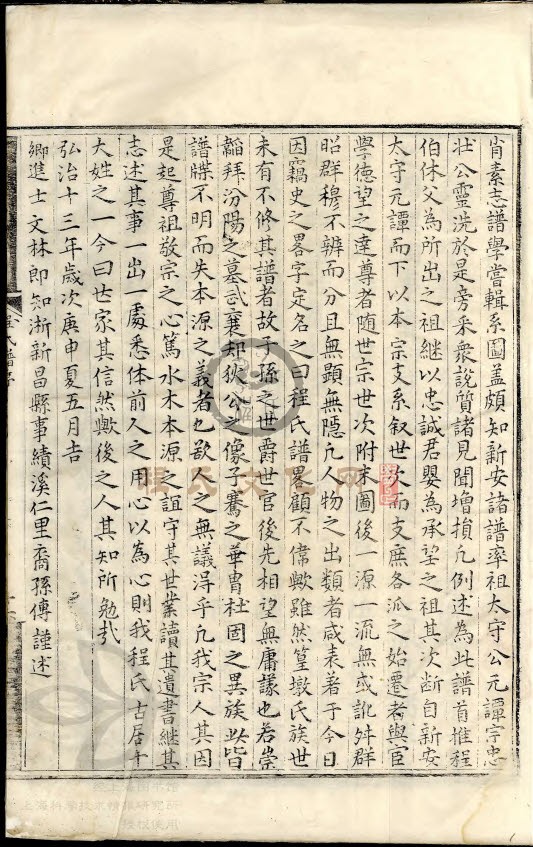 肖素志譜學嘗輯系圖盖頗知新安諸譜率祖太守公元譚宗忠
壮公靈洗於是旁采衆說質諸見聞增損凡例述為此譜首推程
伯休父為所出之祖継以忠誠君嬰為承望之祖其次断自新安
太守元譚而下以本宗支系叙世人而支庶各派之始遷者與官
學德望之達尊者随世宗世次附末圖後一源一流無或訛舛群
昭群穆不辨而分且無顯無隱凡人物之出類者咸表著于今日
因竊史之畧字定名之曰程氏譜畧顧不偉歟雖然篁墩氏族世
未有不修其譜者故子孫之世爵世官後先相望無庸議也若崇
韜拜汾陽之墓武襄却狄公之像子騫之華胄杜固之異族此皆
譜牒不明而失本源之義者也欲人之無議淂乎凡我宗人其因
是起尊祖敬宗之心篤水木本源之誼守其世業讀其遺書継其
志述其事一出一處悉体前人之用心以為心則我程氏古居十
大姓之一今曰世家其信然歟後之人其知所勉㢤
弘治十三年歲次庚申夏五月吉
鄉進士文林郎知浙新昌縣事績溪仁里裔孫傅謹述
程氏譜序
程氏文化网
上海图书馆
上海科学技术情报研究所
授权使用